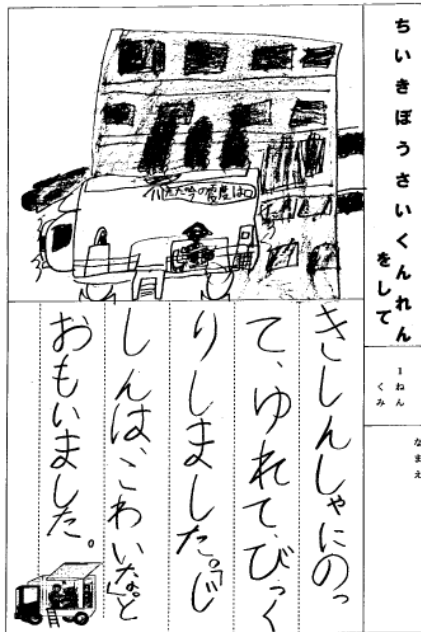 ちいきぼうさいくんれん
をして
1ねん
くみ
なまえ
きしんしゃにのっ
て、ゆれて、びっく
りしました。「じ
しんは、こわいな。」と
おもいました。